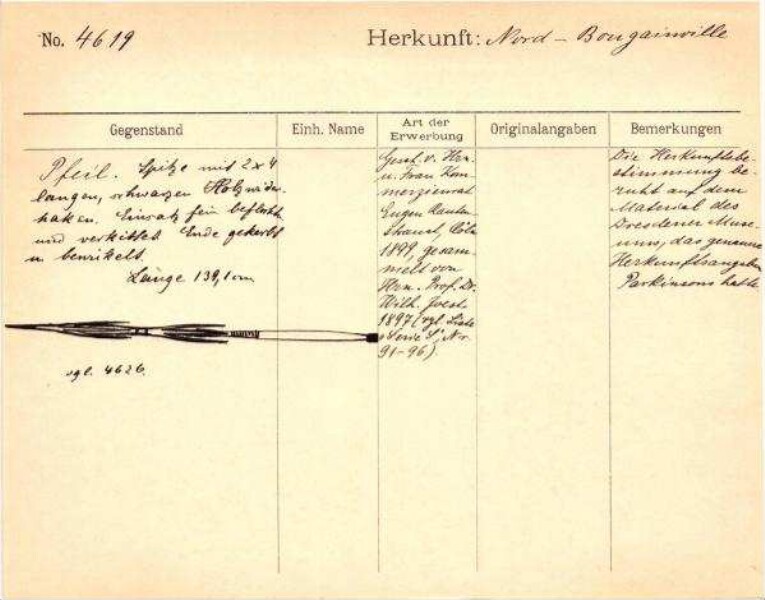 No. 4619
Herkunft: Nord - Bougainville
Gegenstand
Einh. Name
Art der Erwerbung
Originalangaben
Bemerkungen
Pfeil. Spitze mit 2 x 4
langen, schwarzen Holzwider-
haken. Einsatz fein beflochten
und verkittet. Ende gekerbt
u. bewickelt.
Länge 139,1 cm
vgl. 4626.
Gesch. v. Hrn.
u. Frau Kom-
merzienrat
Eugen Rauten-
strauch, Cöln
1899, gesam-
melt von
Hrn. Prof. Dr.
Wilh. Joest
1897 (vgl. Liste
Serie S, Nr.
91-96).
Die Herkunftsbe-
stimmung be-
ruht auf dem
Material des
Dresdener Muse-
ums, das genaue
Herkunftsangaben
Parkinsons hatte.